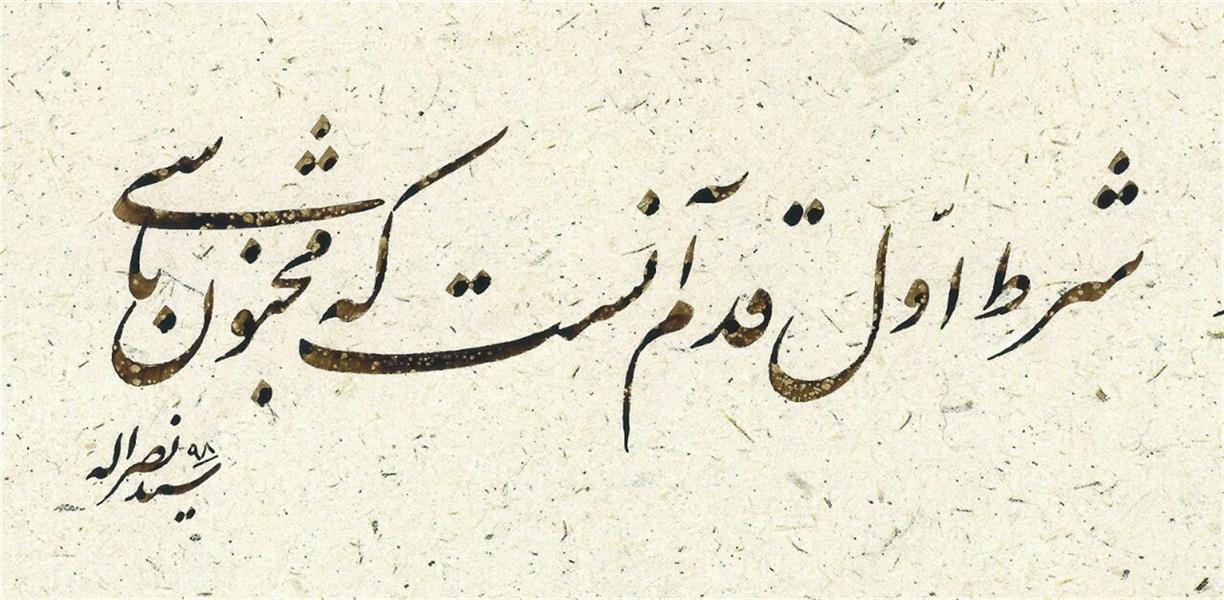 شرط اوّل قدم آنست که مجنون باشی
سید نصراله ۹۸